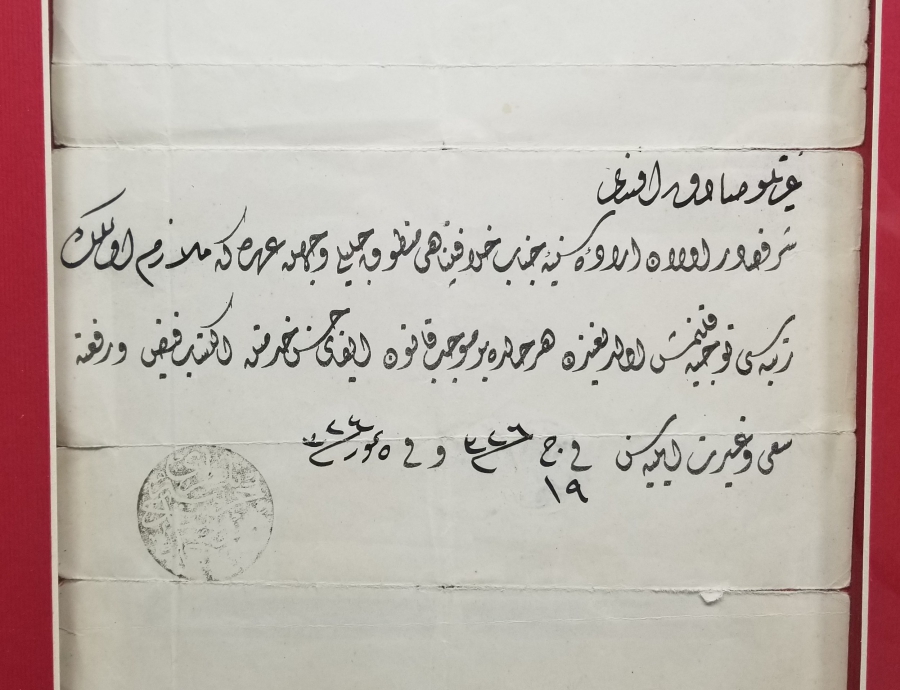 عزتلو صادق افندی
شرفصادر اولان ارادهٔ سنیهٔ جناب خلافتپناهی منطوق جلیلی وجهله عهده‌كه ملازم اوللك
رتبه سی توجیه قلنمش اولدیغندن هر حالده بر موجب قانون ایفای حسن خدمتله اكتساب فیض ورفعته
سعی وغیرت ایلیه سن فی ١٩ ج ٣٢٦ و فی ٥ تموز ٣٢٤